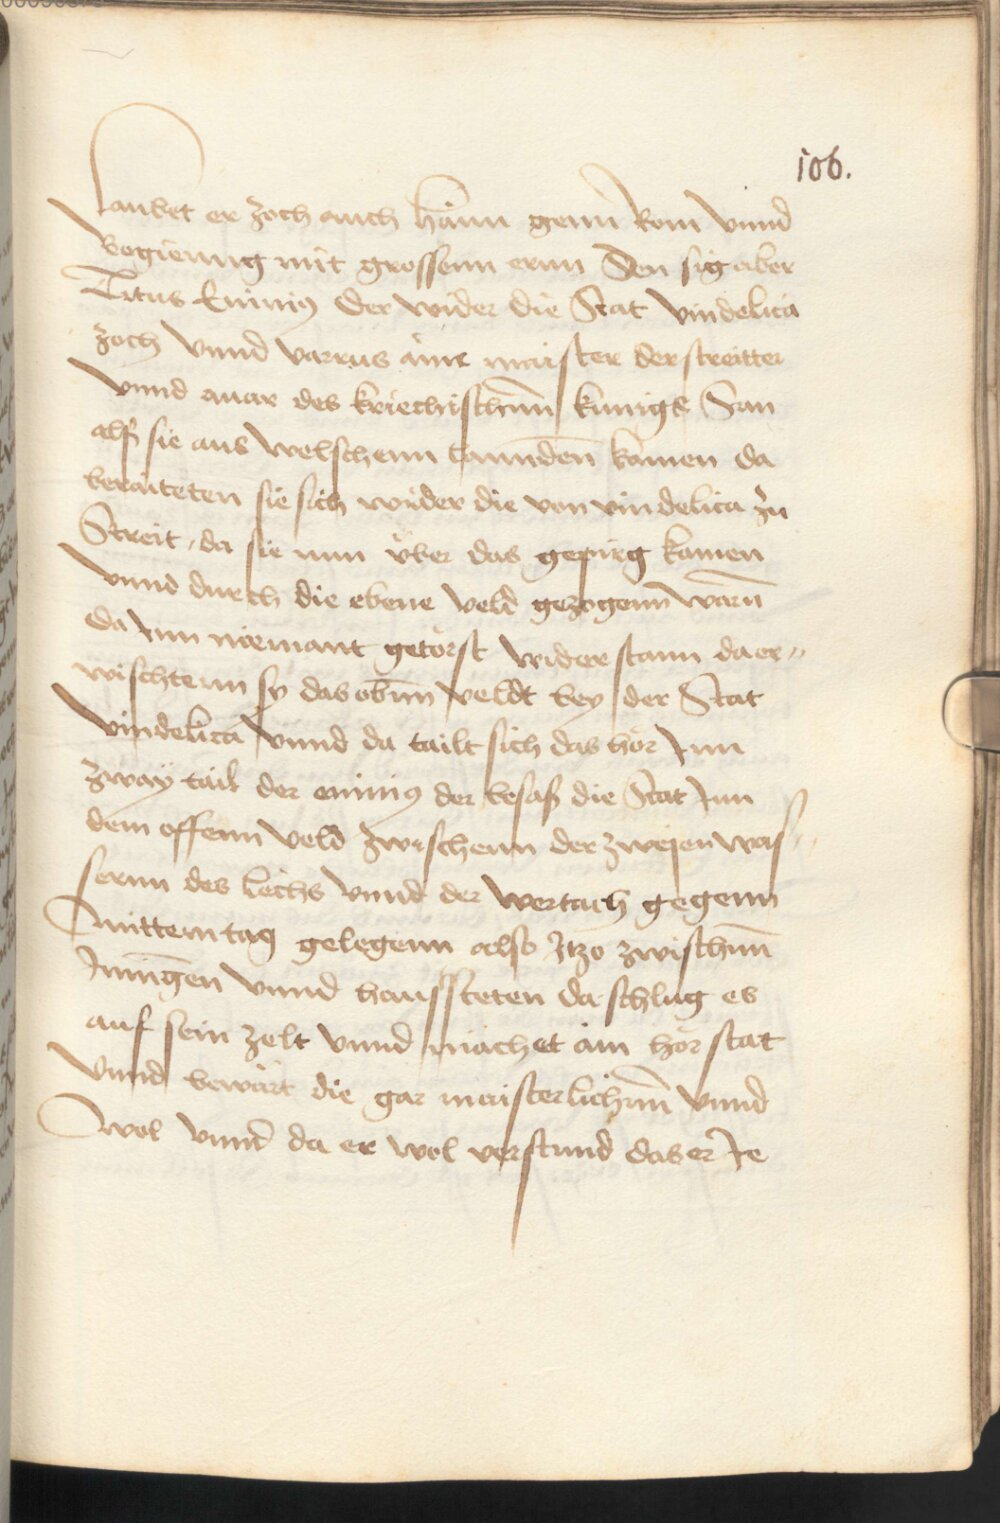 106.
laubet er zoch auch haim genn Rom vnnd
Regierung mit grossenn ernn Den sig aber
Titus Ennius der wider die Stat vindelica
zoch vnnd varrus aine maister der streitter
vnnd auar des kriechischenn kunigs Sun
alß sie aus welschenn lannden kamen da
beraiteten sie sich wider die von vindelica zu
Streit, da sie nun vber das gepirg kamen
vnnd durch die ebene veld gezogenn warn
da Inn niemant getorst widerstann da er-
wischtenn sy das obenn veldt bey der Stat
vindelica vnnd da tailt sich das hör Inn
zway tail der ennius der besaß die Stat Inn
dem offenn veld zwischenn der zwejen was-
sernn des Lechs vnnd der wertach gegenn
mittemtag gelegenn also Itzo zwischenn
Inningen vnnd haussteten da schlug es
auf sein zelt vnnd machet ain hör stat
vnnd bewart die gar maisterlichenn vnnd
wol vnnd da er wol verstund das er Je